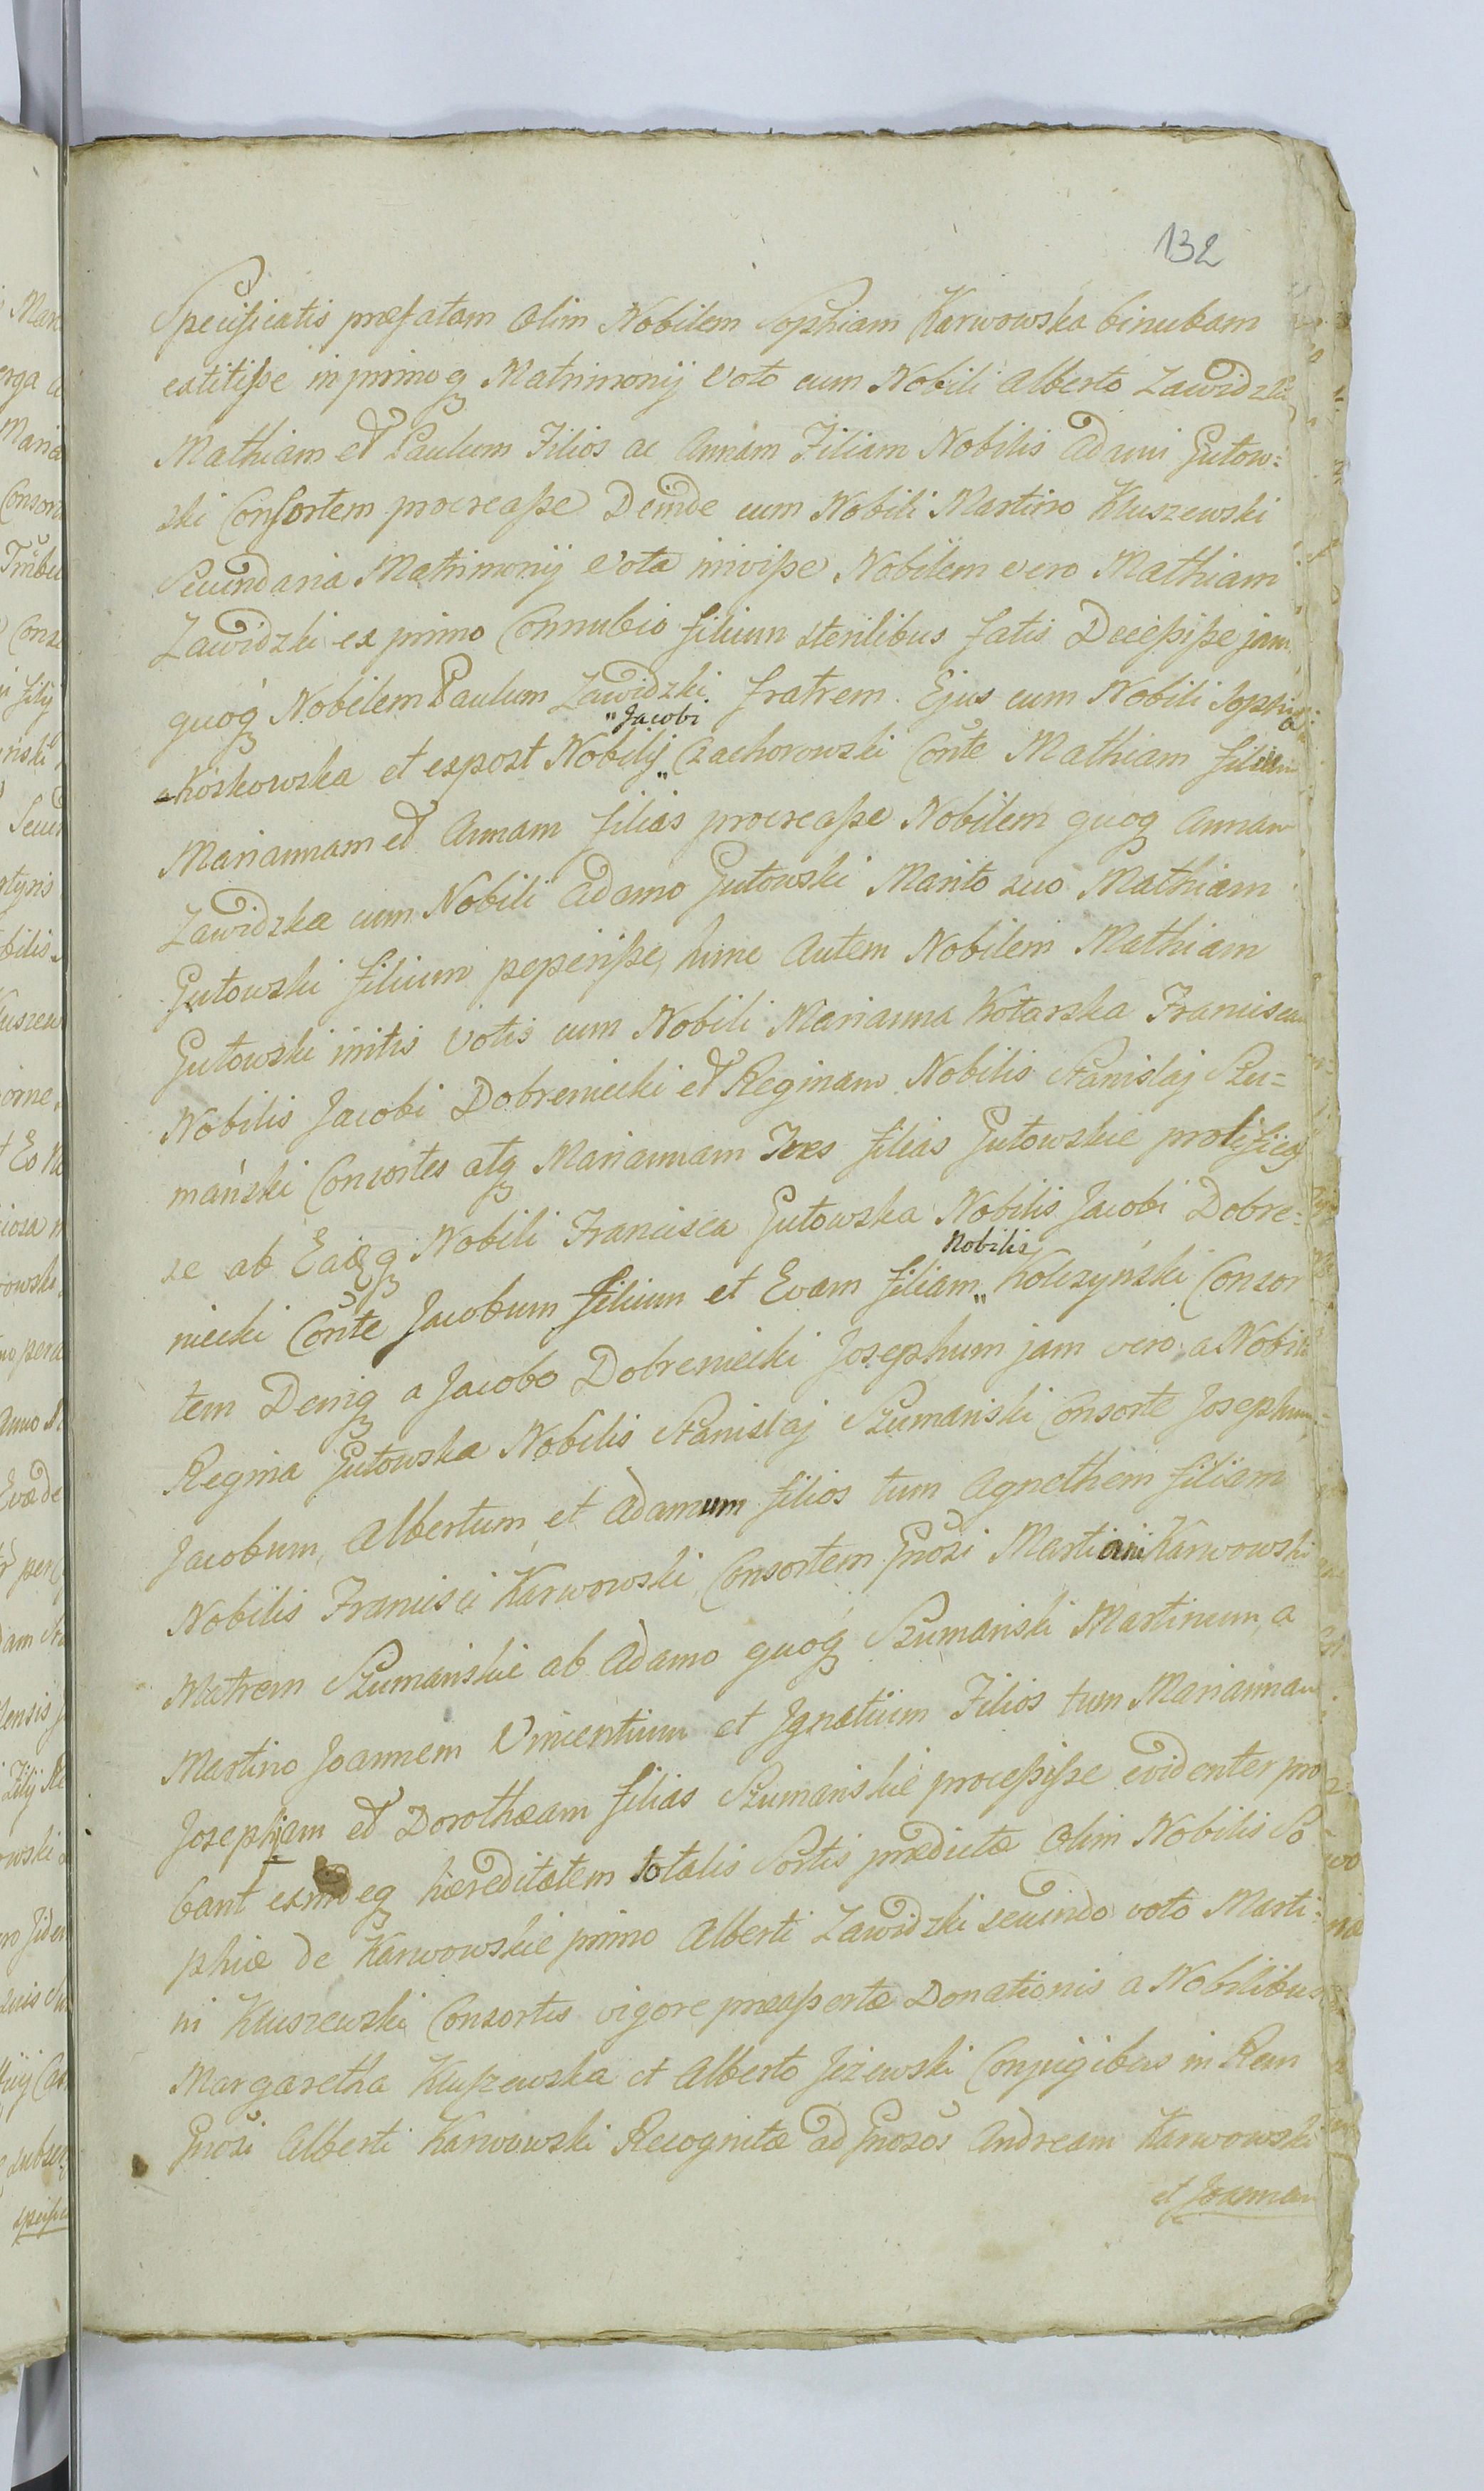 132
Specificatis praefatam Olim Nobilem Sophiam Karwowska binubam
extitisse in primoq Matrimonij Voto cum Nobili Alberto Zawidzki
Mathiam et Paulum Filios ac Annam Filiam Nobilis Adami Gutow=
ski Consortem procreasse Deinde cum Nobili Martino Kluszewski
Secundaria Matrimonij Vota inivisse Nobilem vero Mathiam
Zawidzki ex primo Connubio filium sterilibus fatis Decessisse jam
quoq Nobilem Paulum Zawidzki fratrem Ejus cum Nobili Sophia
"Jacobi
a Koskowska et expost Nobilij „ Czachorowski Coñte Mathiam filium
Mariannam et Annam filias procreasse Nobilem quoq Annam
Zawidzka cum Nobili Adamo Gutowski Marito suo Mathiam
Gutowski filium peperisse, hunc Autem Nobilem Mathiam
Gutowski initis Votis cum Nobili Marianna Kotarska Franciscam
Nobilis Jacobi Dobreniecki et Reginam Nobilis Stanislaj Szu=
mański Consortes atq Mariannam Tres filias Gutowskie prolificas
se ab Eaq Nobili Francisca Gutowska Nobilis Jacobi Dobre=
Nobilis
niecki Coñte Jacobum filium et Evam filiam „ Kolczyński Consor
tem Deniq a Jacobo Dobreniecki Josephum jam vero a Nobili
Regina Gutowska Nobilis Stanislaj Szumański Consorte Josephum,
Jacobum, Albertum, et Adamum filios tum Agnethem filiam
Nobilis Francisci Karwowski Consortem Gnosi Martiani Karwowski
Matrem Szumańskie ab Adamo quoq Szumański Martinum, a
Martino Joannem Vincentium et Ignatium Filios tum Mariannam
Josepham et Dorotheam filias Szumańskie processisse evidenter pro
bant exindeq haereditatem totalis Sortis praedictae Olim Nobilis So
phiae de Karwowskie primo Alberti Zawidzki secundo voto Marti=
ni Kluszewski Consortis vigore praeexpertae Donationis a Nobilibus
Margaretha Kluszewska et Alberto Jeżewski Conjugibus in Rem
Gnosi Alberti Karwowski Recognitae ad Gnosos Andream Karwowski
et Joannem